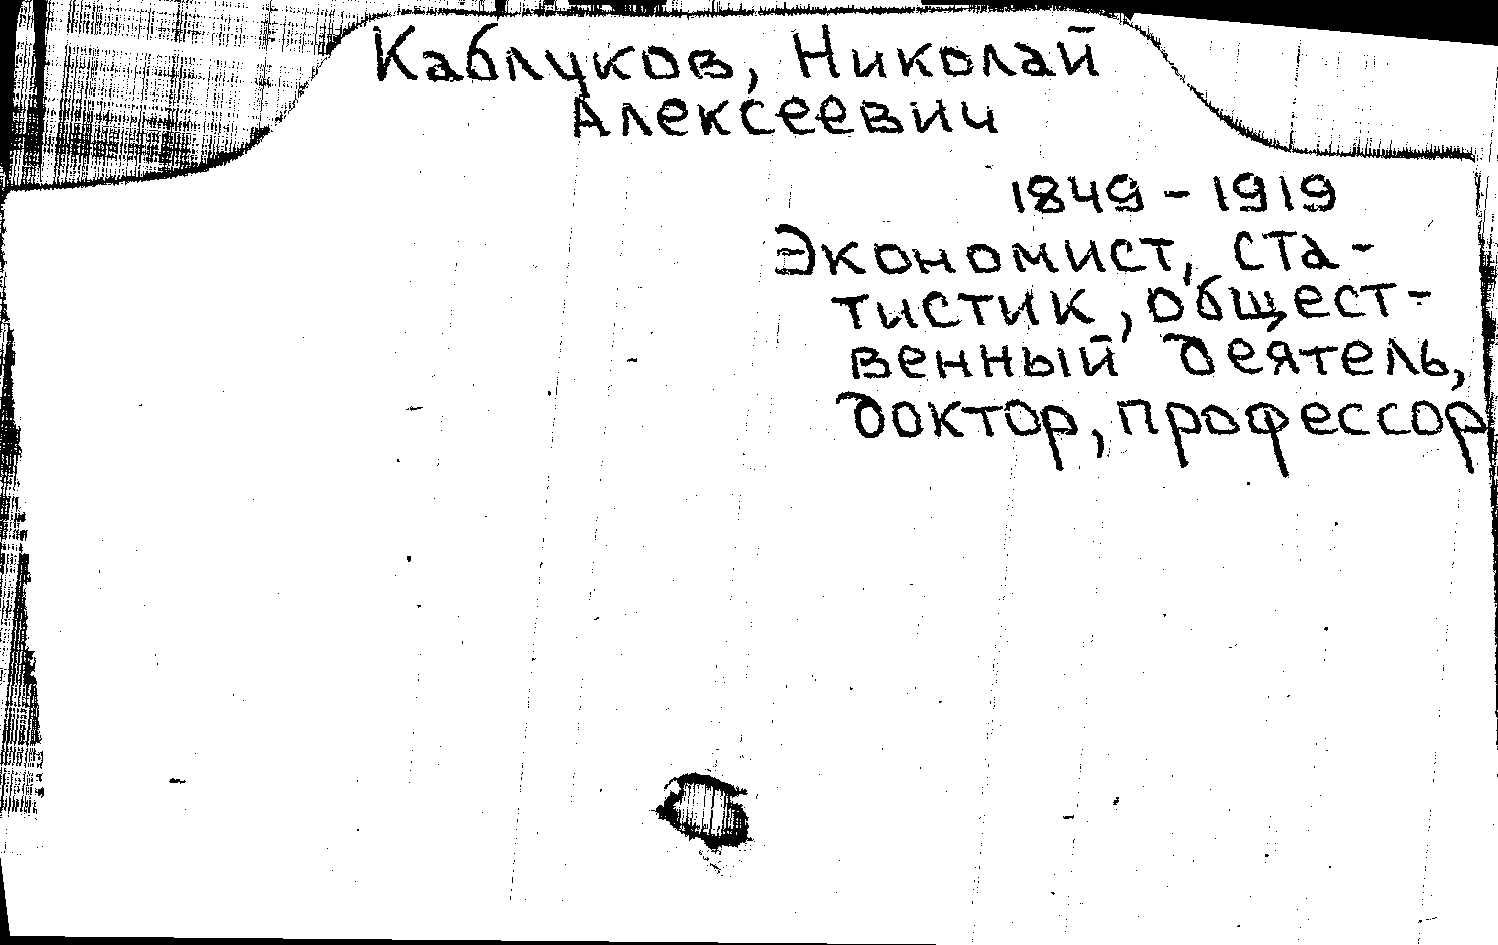 Каблуков, Николай
Алексеевич
1849 - 1919
Экономист, ста-
тистик, общест-
венный деятель,
доктор, профессор